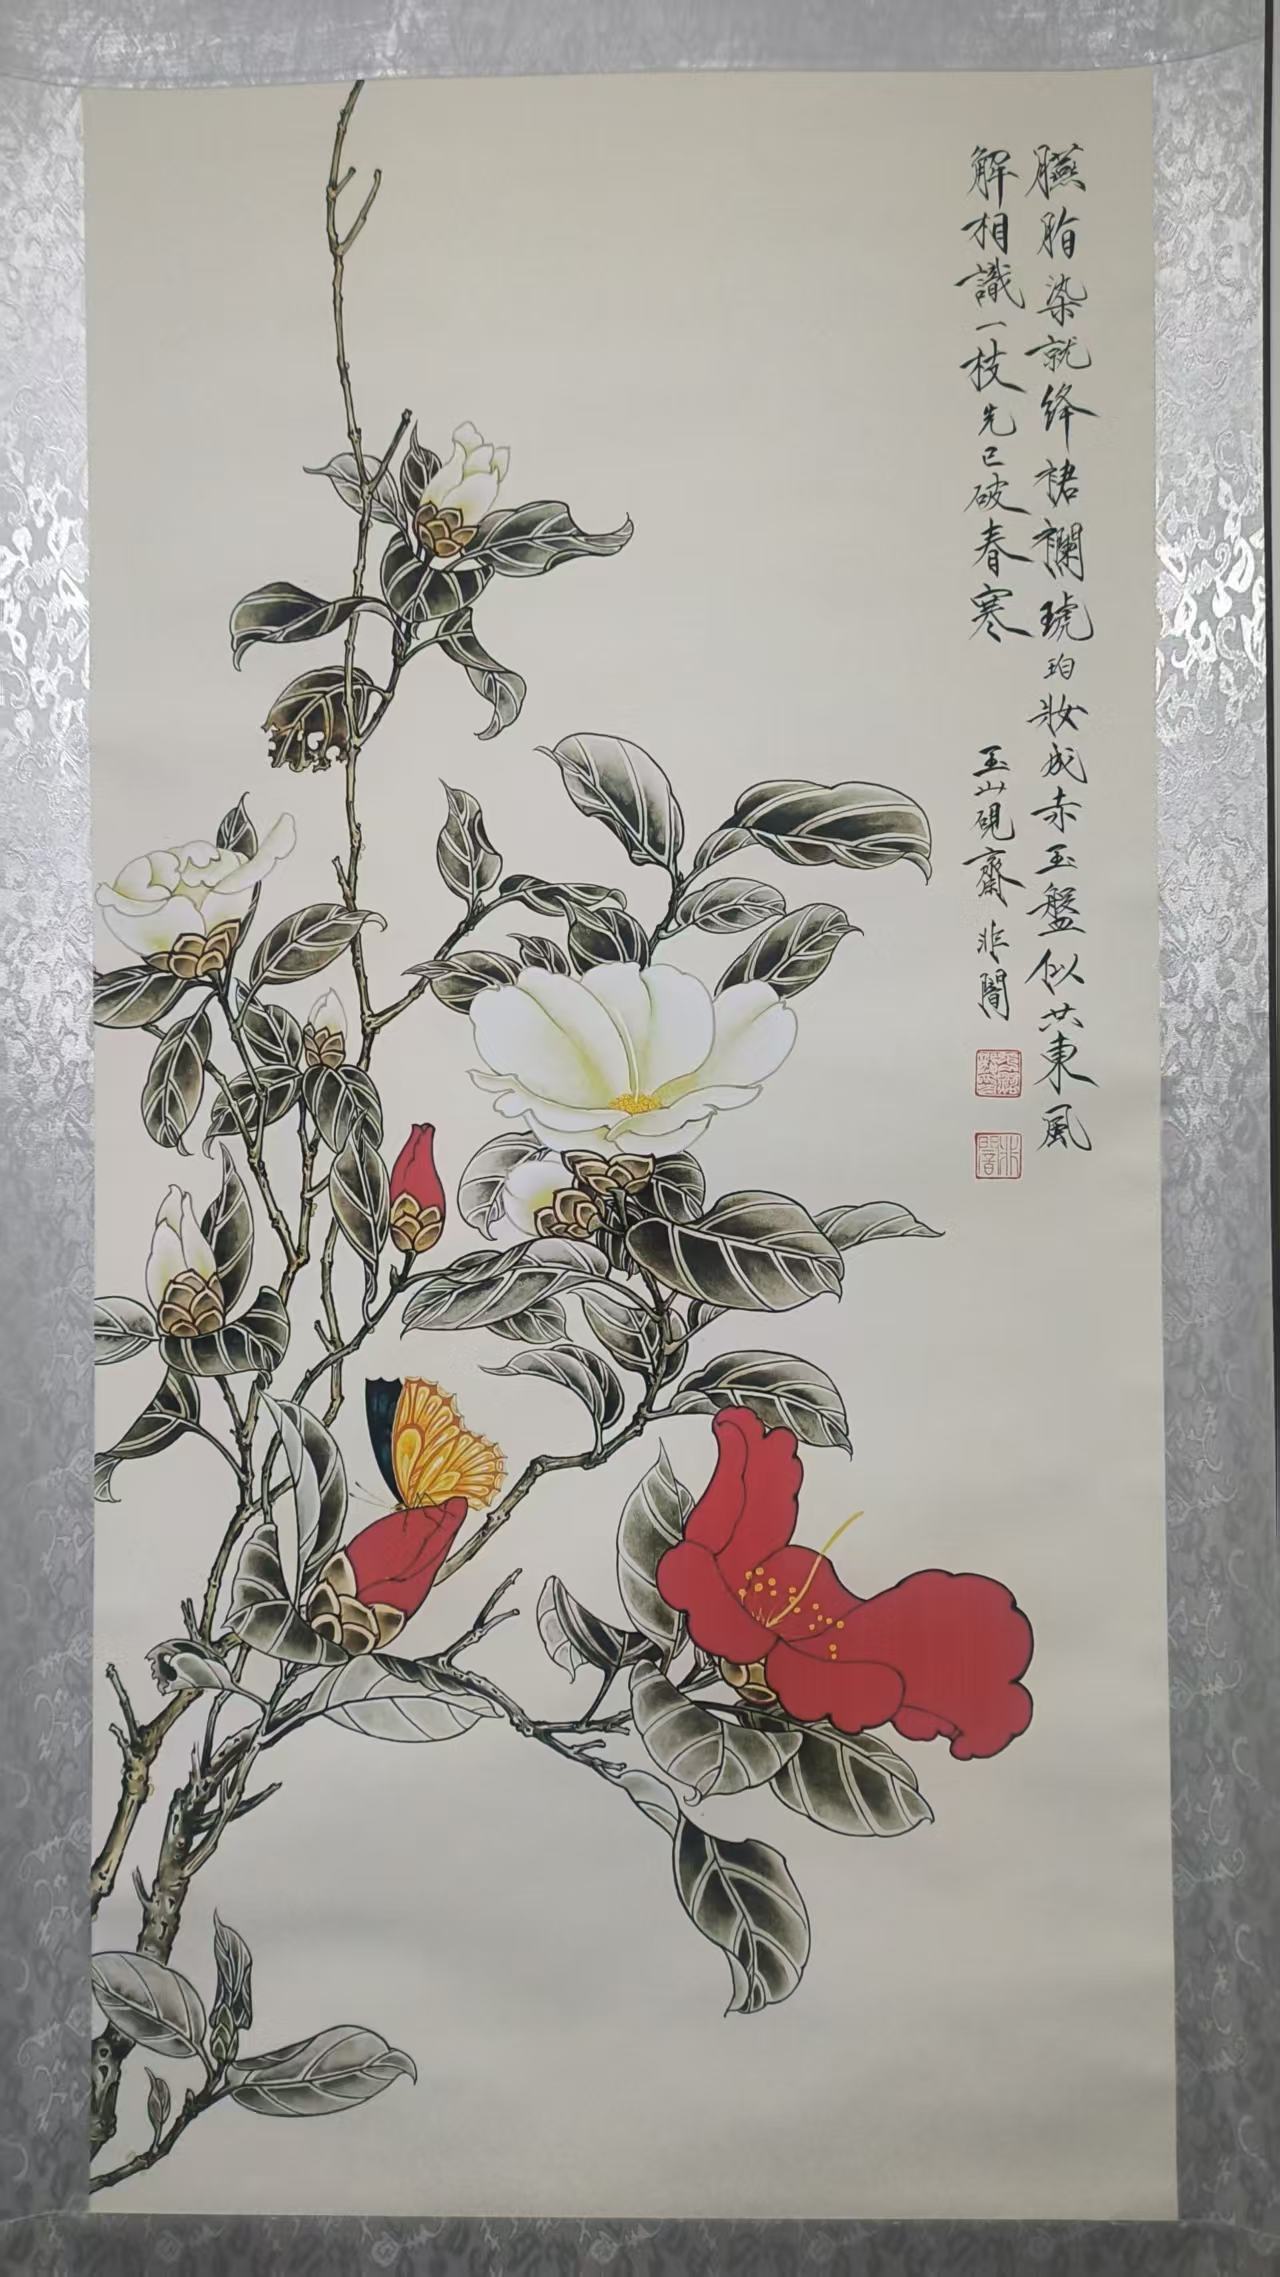 臙脂染就絳裙襴琥珀妝成赤玉盤似共東風
解相識一枝先已破春寒
玉山硯齋非闇
非闇